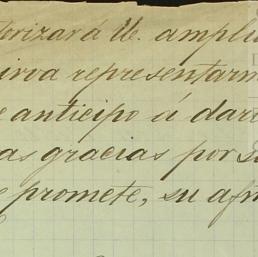 torizará U. ampli
sirva representarm
e anticipo á dar
as gracias por s
e promete, su afm